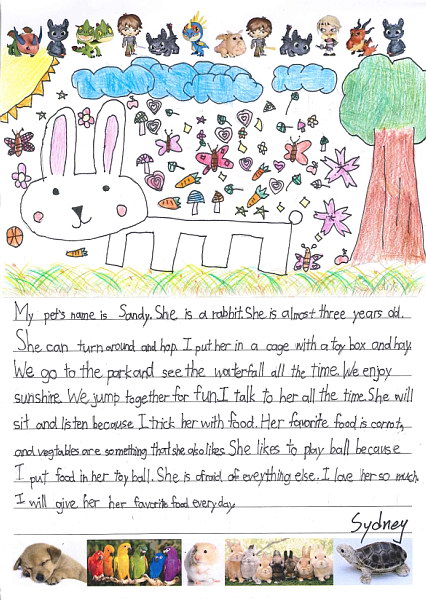 My pet's name is Sandy. She is a rabbit. She is almost three years old.
She can turn around and hop. I put her in a cage with a toy box and hay.
We go to the park and see the waterfall all the time. We enjoy
sunshine. We jump together for fun. I talk to her all the time. She will
sit and listen because I trick her with food. Her favorite food is carrots,
and vegtables are something that she also likes. She likes to play ball because
I put food in her toy ball. She is afraid of evything else. I love her so much.
I will give her her favorite food everyday.
Sydney